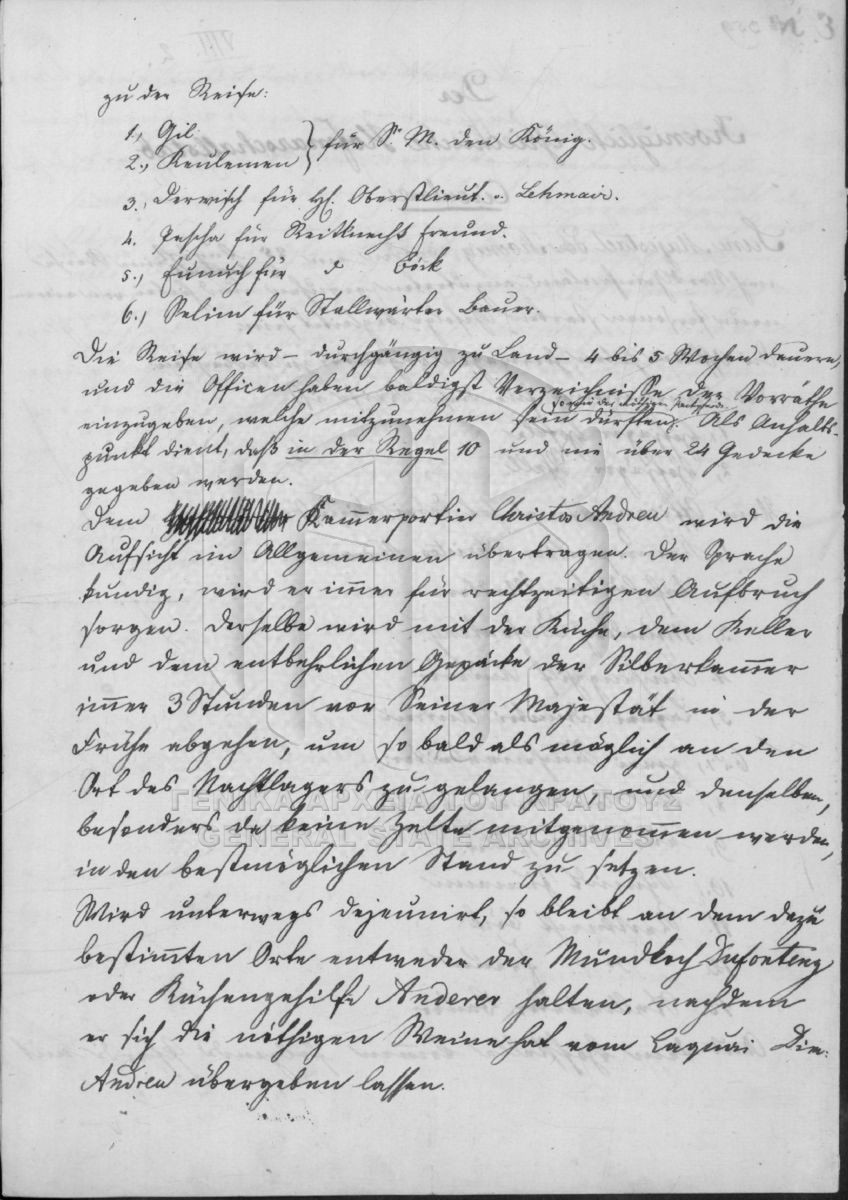 zu der Reise:
1., Gil
2., Keulemen } für Sr. M. den König.
3., Derwisch für H. Oberstlieut. v. Lehmair.
4. Pascha für Reitknecht Freund.
5., Eunuch für d Böck
6., Selim für Stallwärter Bauer.
Die Reise wird – durchgängig zu Land – 4 bis 5 Wochen dauern,
und die Officen haben baldigst Verzeichnisse der Vorräthe
sowie der nöthigen
einzugeben, welche mitzunehmen sein dürften. Als Anhalts-
punkt dient, daß in der Regel 10 und nie über 24 Gedecke
gegeben werden.
Dem Kammerportier Christos Andreu wird die
Aufsicht im Allgemeinen übertragen. Der Sprache
kundig, wird er im̅er für rechtzeitigen Aufbruch
sorgen. Derselbe wird mit der Küche, dem Keller
und dem entbehrlichen Gepäcke der Silberkam̅er
im̅er 3 Stunden vor Seiner Majestät in der
Frühe abgehen, um so bald als möglich an den
Ort des Nachtlagers zu gelangen, und denselben,
besonders da keine Zelte mitgenom̅en werden,
in den bestmöglichen Stand zu setzen.
Wird unterwegs dejeunirt, so bleibt an dem dazu
bestim̅ten Orte entweder der Mundkoch
oder Küchengehilfe Anderer halten, nachdem
er sich die nöthigen Weine hat vom Laquai Dim:
Andreu übergeben lassen.
ΓΕΝΙΚΑ ΑΡΧΕΙΑ ΤΟΥ ΚΡΑΤΟΥΣ
GENERAL STATE ARCHIVES